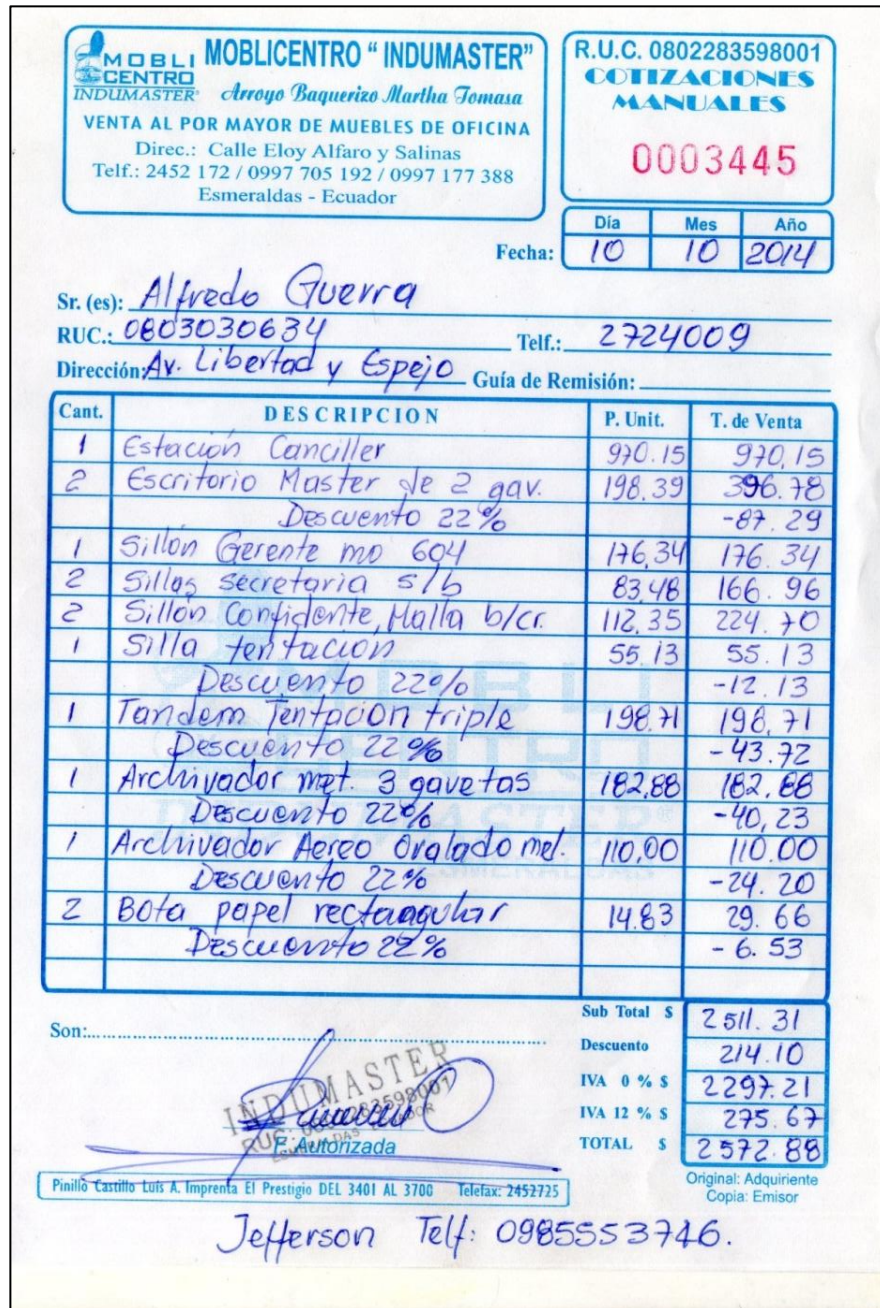 MOBLI CENTRO INDUMASTER®
MOBLICENTRO " INDUMASTER"
Arroyo Baquerizo Martha Tomasa
VENTA AL POR MAYOR DE MUEBLES DE OFICINA
Direc.: Calle Eloy Alfaro y Salinas
Telf.: 2452 172 / 0997 705 192 / 0997 177 388
Esmeraldas - Ecuador
R.U.C. 0802283598001
COTIZACIONES
MANUALES
0003445
Día Mes Año
Fecha: 10 10 2014
Sr. (es): Alfredo Guerra
RUC.: 0803030634 Telf.: 2724009
Dirección: Av. Libertad y Espejo Guía de Remisión:
Cant. DESCRIPCION P. Unit. T. de Venta
1 Estación Canciller 970.15 970,15
2 Escritorio Master de 2 gav. 198.39 396.78
Descuento 22% -87.29
1 Sillón Gerente mo 604 176,34 176.34
2 Sillas secretaria s/b 83,48 166.96
2 Sillón Confidente, Malla b/cr. 112,35 224.70
1 Silla tentación 55.13 55.13
Descuento 22% -12.13
1 Tandem Tentación triple 198.71 198,71
Descuento 22% -43.72
1 Archivador met. 3 gavetas 182,88 182.88
Descuento 22% -40,23
1 Archivador Aereo Ovalado met. 110,00 110.00
Descuento 22% -24.20
2 Bota papel rectangular 14.83 29.66
Descuento 22% -6.53
MOBLI
CENTRO
INDUMASTER®
ESMERALDAS
Son:
Sub Total $ 2511.31
Descuento 214.10
IVA 0 % $ 2297.21
IVA 12 % $ 275.67
TOTAL $ 2572.88
INDUMASTER
RUC: 0802283598001
ESMERALDAS ECUADOR
F. Autorizada
Original: Adquiriente
Copia: Emisor
Pinillo Castillo Luis A. Imprenta El Prestigio DEL 3401 AL 3700 Telefax: 2452725
Jefferson Telf: 0985553746.